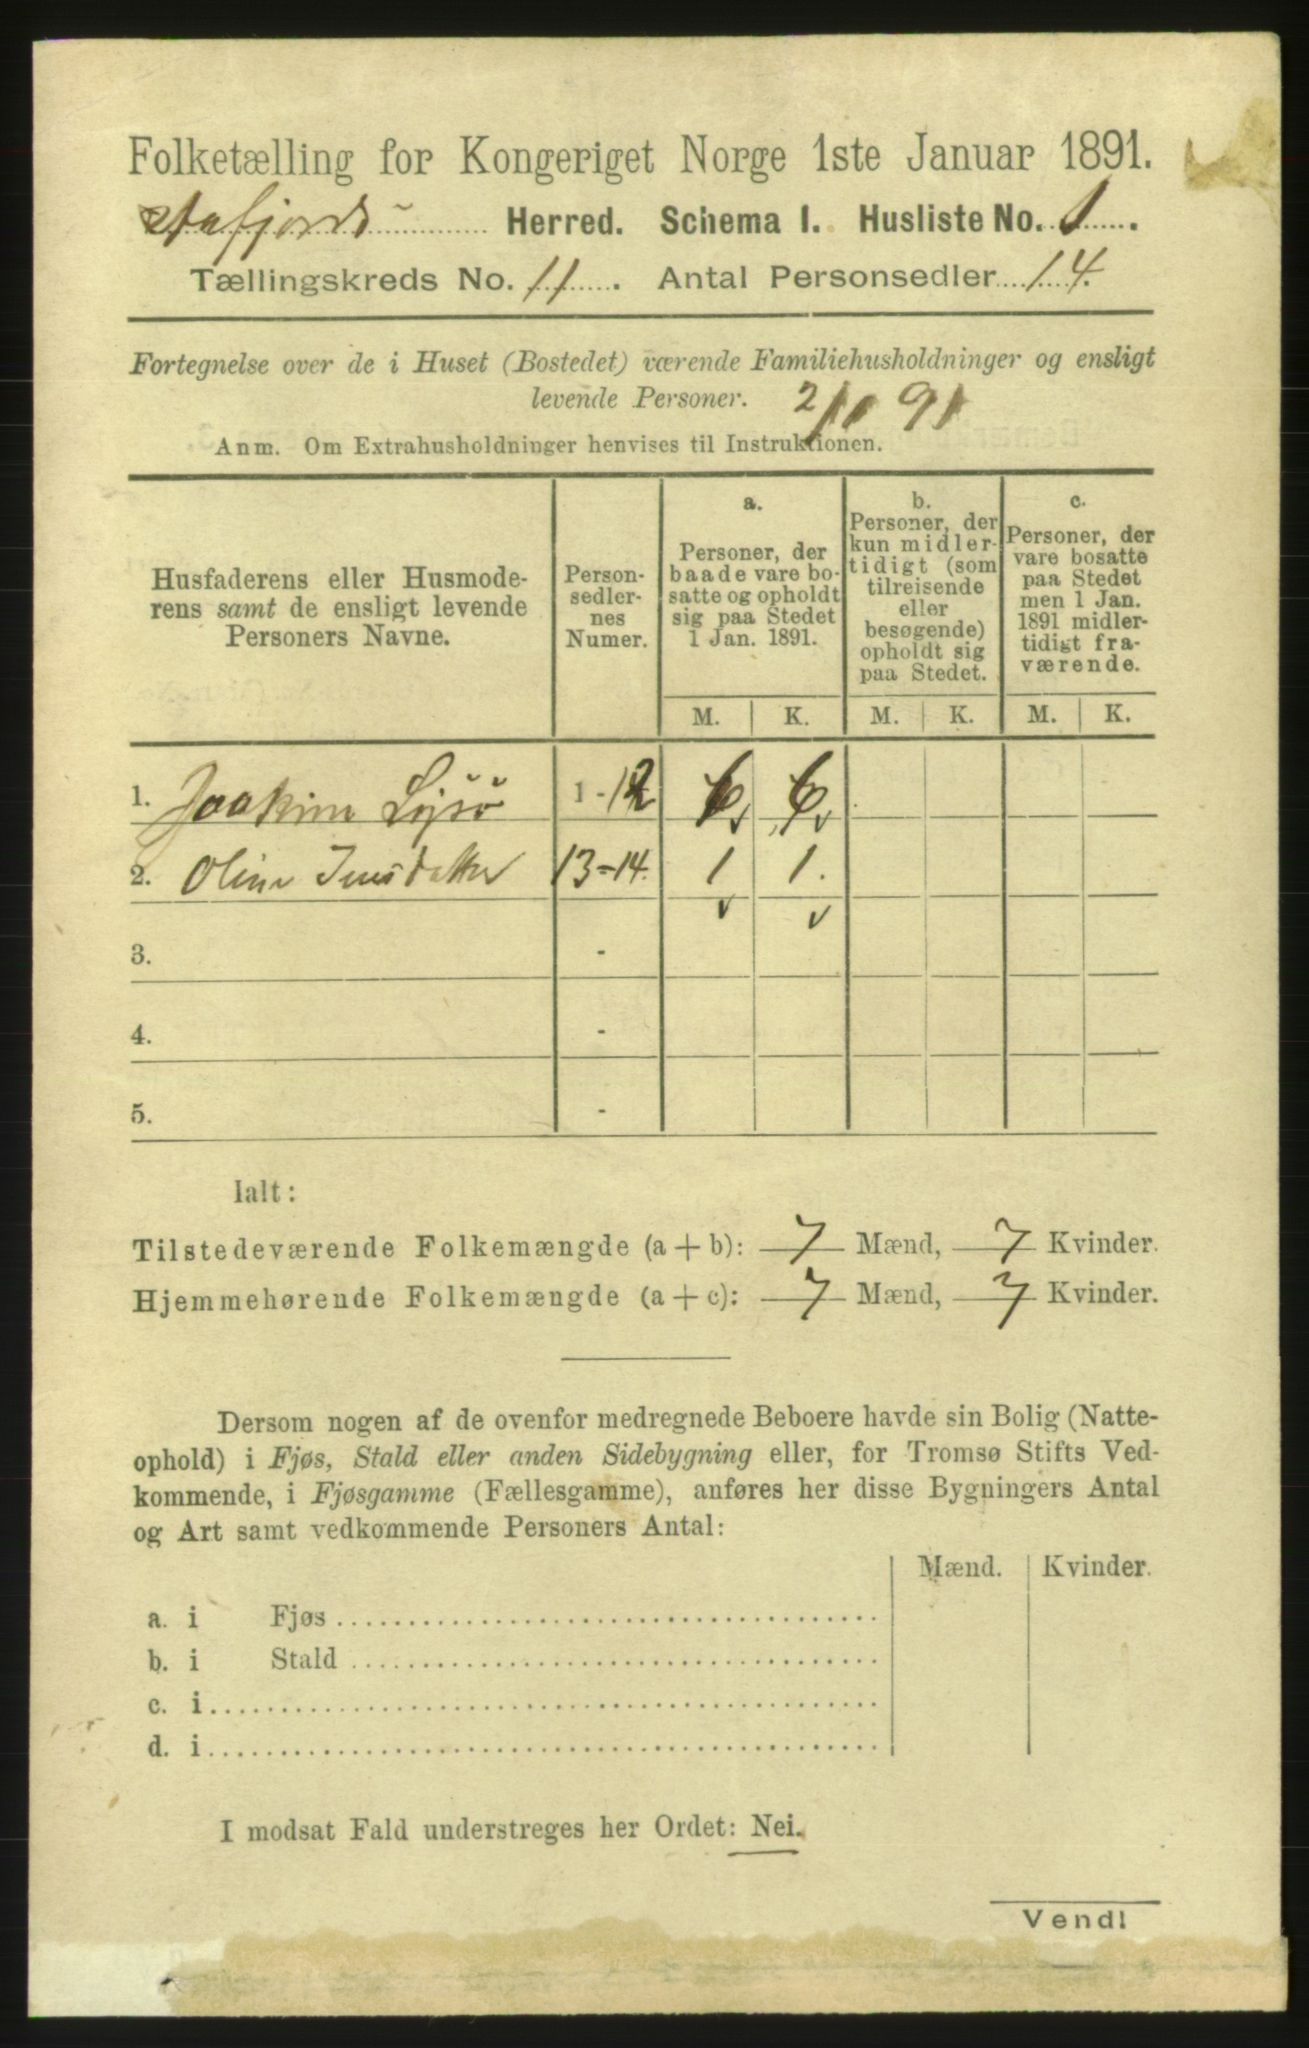 Folketælling for Kongeriget Norge 1ste Januar 1891.
Aafjords Herred. Schema I. Husliste No. 1.
Tællingskreds No. 11. Antal Personsedler 14.
Fortegnelse over de i Huset (Bostedet) værende Familiehusholdninger og ensligt
levende Personer. 2/1 91
Anm. Om Extrahusholdninger henvises til Instruktionen.
Husfaderens eller Husmode-
rens samt de ensligt levende
Personers Navne.
Person-
sedler-
nes
Numer.
a.
Personer, der
baade vare bo-
satte og opholdt
sig paa Stedet
1 Jan. 1891.
b.
Personer, der
kun midler-
tidigt (som
tilreisende
eller
besøgende)
opholdt sig
paa Stedet.
c.
Personer, der
vare bosatte
paa Stedet
men 1 Jan.
1891 midler-
tidigt fra-
værende.
M. K. M. K. M. K.
1. Joakim Lysø 1 - 12 6 6
2. Oline Jensdatter 13-14. 1 1.
3. -
4. -
5. -
Ialt:
Tilstedeværende Folkemængde (a + b): 7 Mænd, 7 Kvinder.
Hjemmehørende Folkemængde (a + c): 7 Mænd, 7 Kvinder.
Dersom nogen af de ovenfor medregnede Beboere havde sin Bolig (Natte-
ophold) i Fjøs, Stald eller anden Sidebygning eller, for Tromsø Stifts Ved-
kommende, i Fjøsgamme (Fællesgamme), anføres her disse Bygningers Antal
og Art samt vedkommende Personers Antal:
Mænd. Kvinder.
a. i Fjøs
b. i Stald
c. i
d. i
I modsat Fald understreges her Ordet: Nei.
Vend!